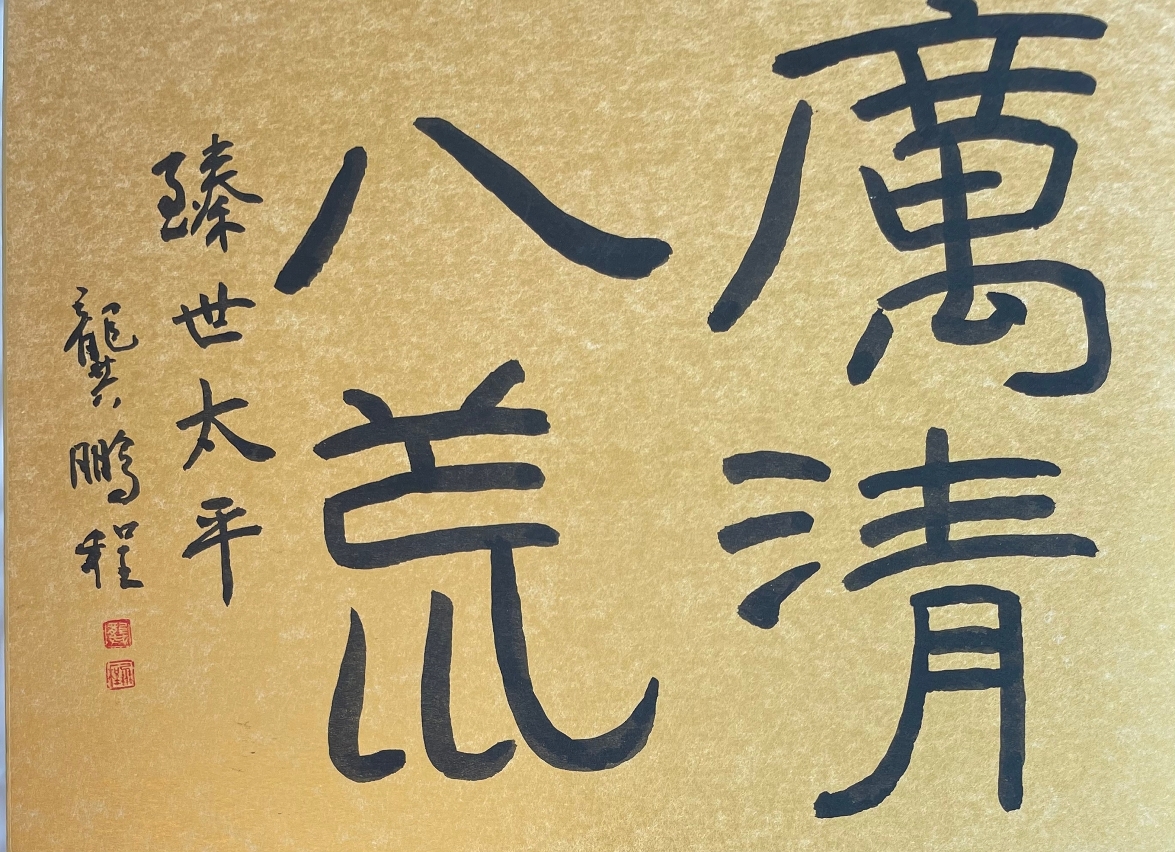 厲清
八荒
臻世太平
龔鵬程